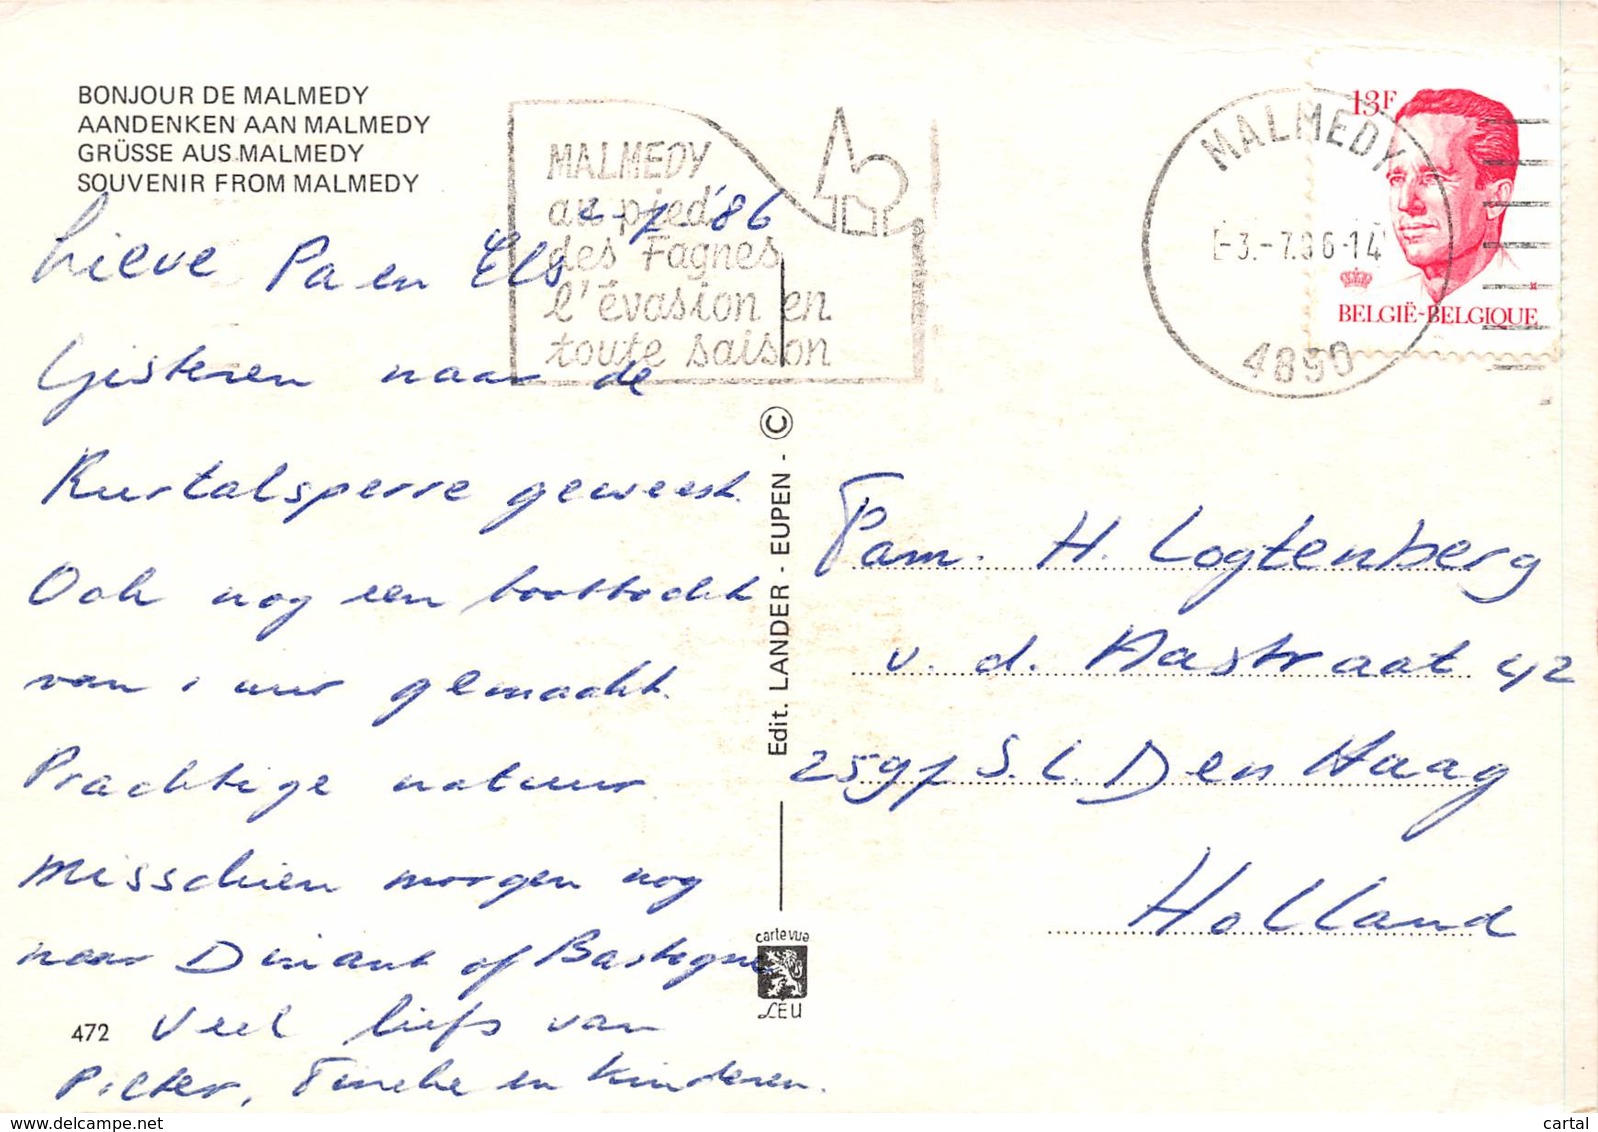 BONJOUR DE MALMEDY
AANDENKEN AAN MALMEDY
GRÜSSE AUS MALMEDY
SOUVENIR FROM MALMEDY
MALMEDY
au pied
des Fagnes
l'évasion en
toute saison
13F
MALMEDY
-3.-7.86-14
4890
BELGIË-BELGIQUE
2-7 '86
Lieve Pa en Els
Gisteren naar de
Rurtalsperre geweest.
Ook nog een boottocht
van 1 uur gemaakt.
Prachtige natuur
Misschien morgen nog
naar Dinant of Bastogne
Veel liefs van
Pieter, Tineke en kinderen.
472
Edit. LANDER - EUPEN - ©
carte vue
LEU
Fam. H. Logtenberg
v. d. Aastraat 42
2597 S.L. Den Haag
Holland
cartal
www.delcampe.net